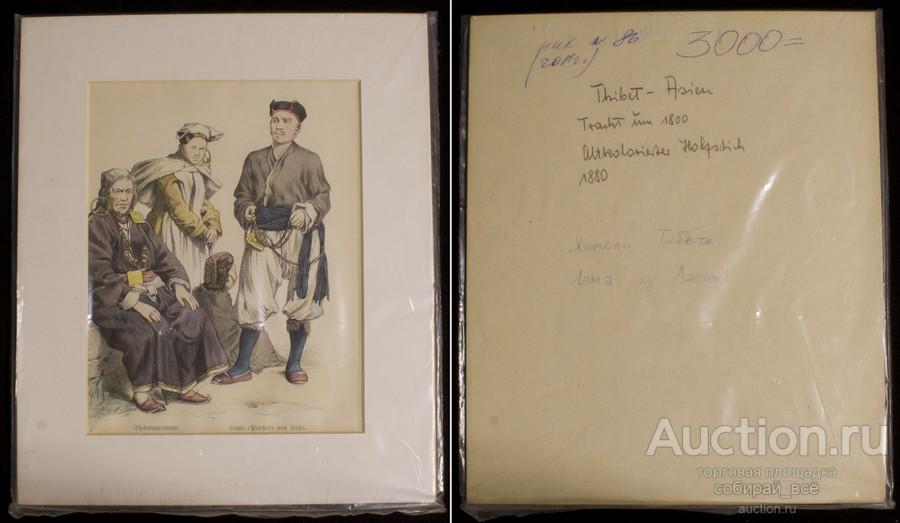 Thibetanerinnen.
Lama (Priester) von Lassa.
рик № 86
3000=
Thibet - Asien
Tracht um 1800
Altkolorierter Holzstich
1880
Жители Тибета
Лама из
Auction.ru
торговая площадка
собирай_всё
auction.ru